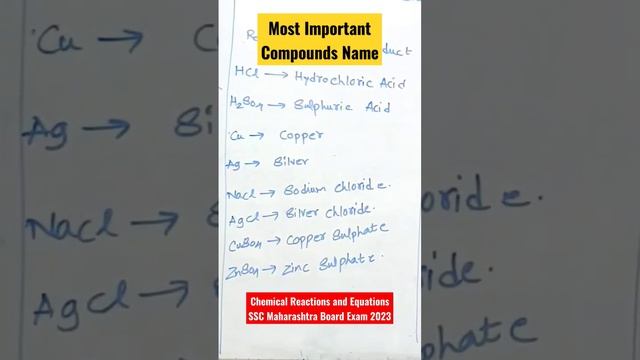 Most Important
Compounds Name
Re
duct
HCl → Hydrochloric Acid
H2SO4 → Sulphuric Acid
Cu → Copper
Ag → Silver
Nacl → Sodium chloride.
AgCl → Silver chloride.
CuSO4 → Copper Sulphate
ZnSO4 → Zinc Sulphate.
Chemical Reactions and Equations
SSC Maharashtra Board Exam 2023
Cu → C
Ag → Sil
Nacl → S
AgCl →
oride.
ide.
phate